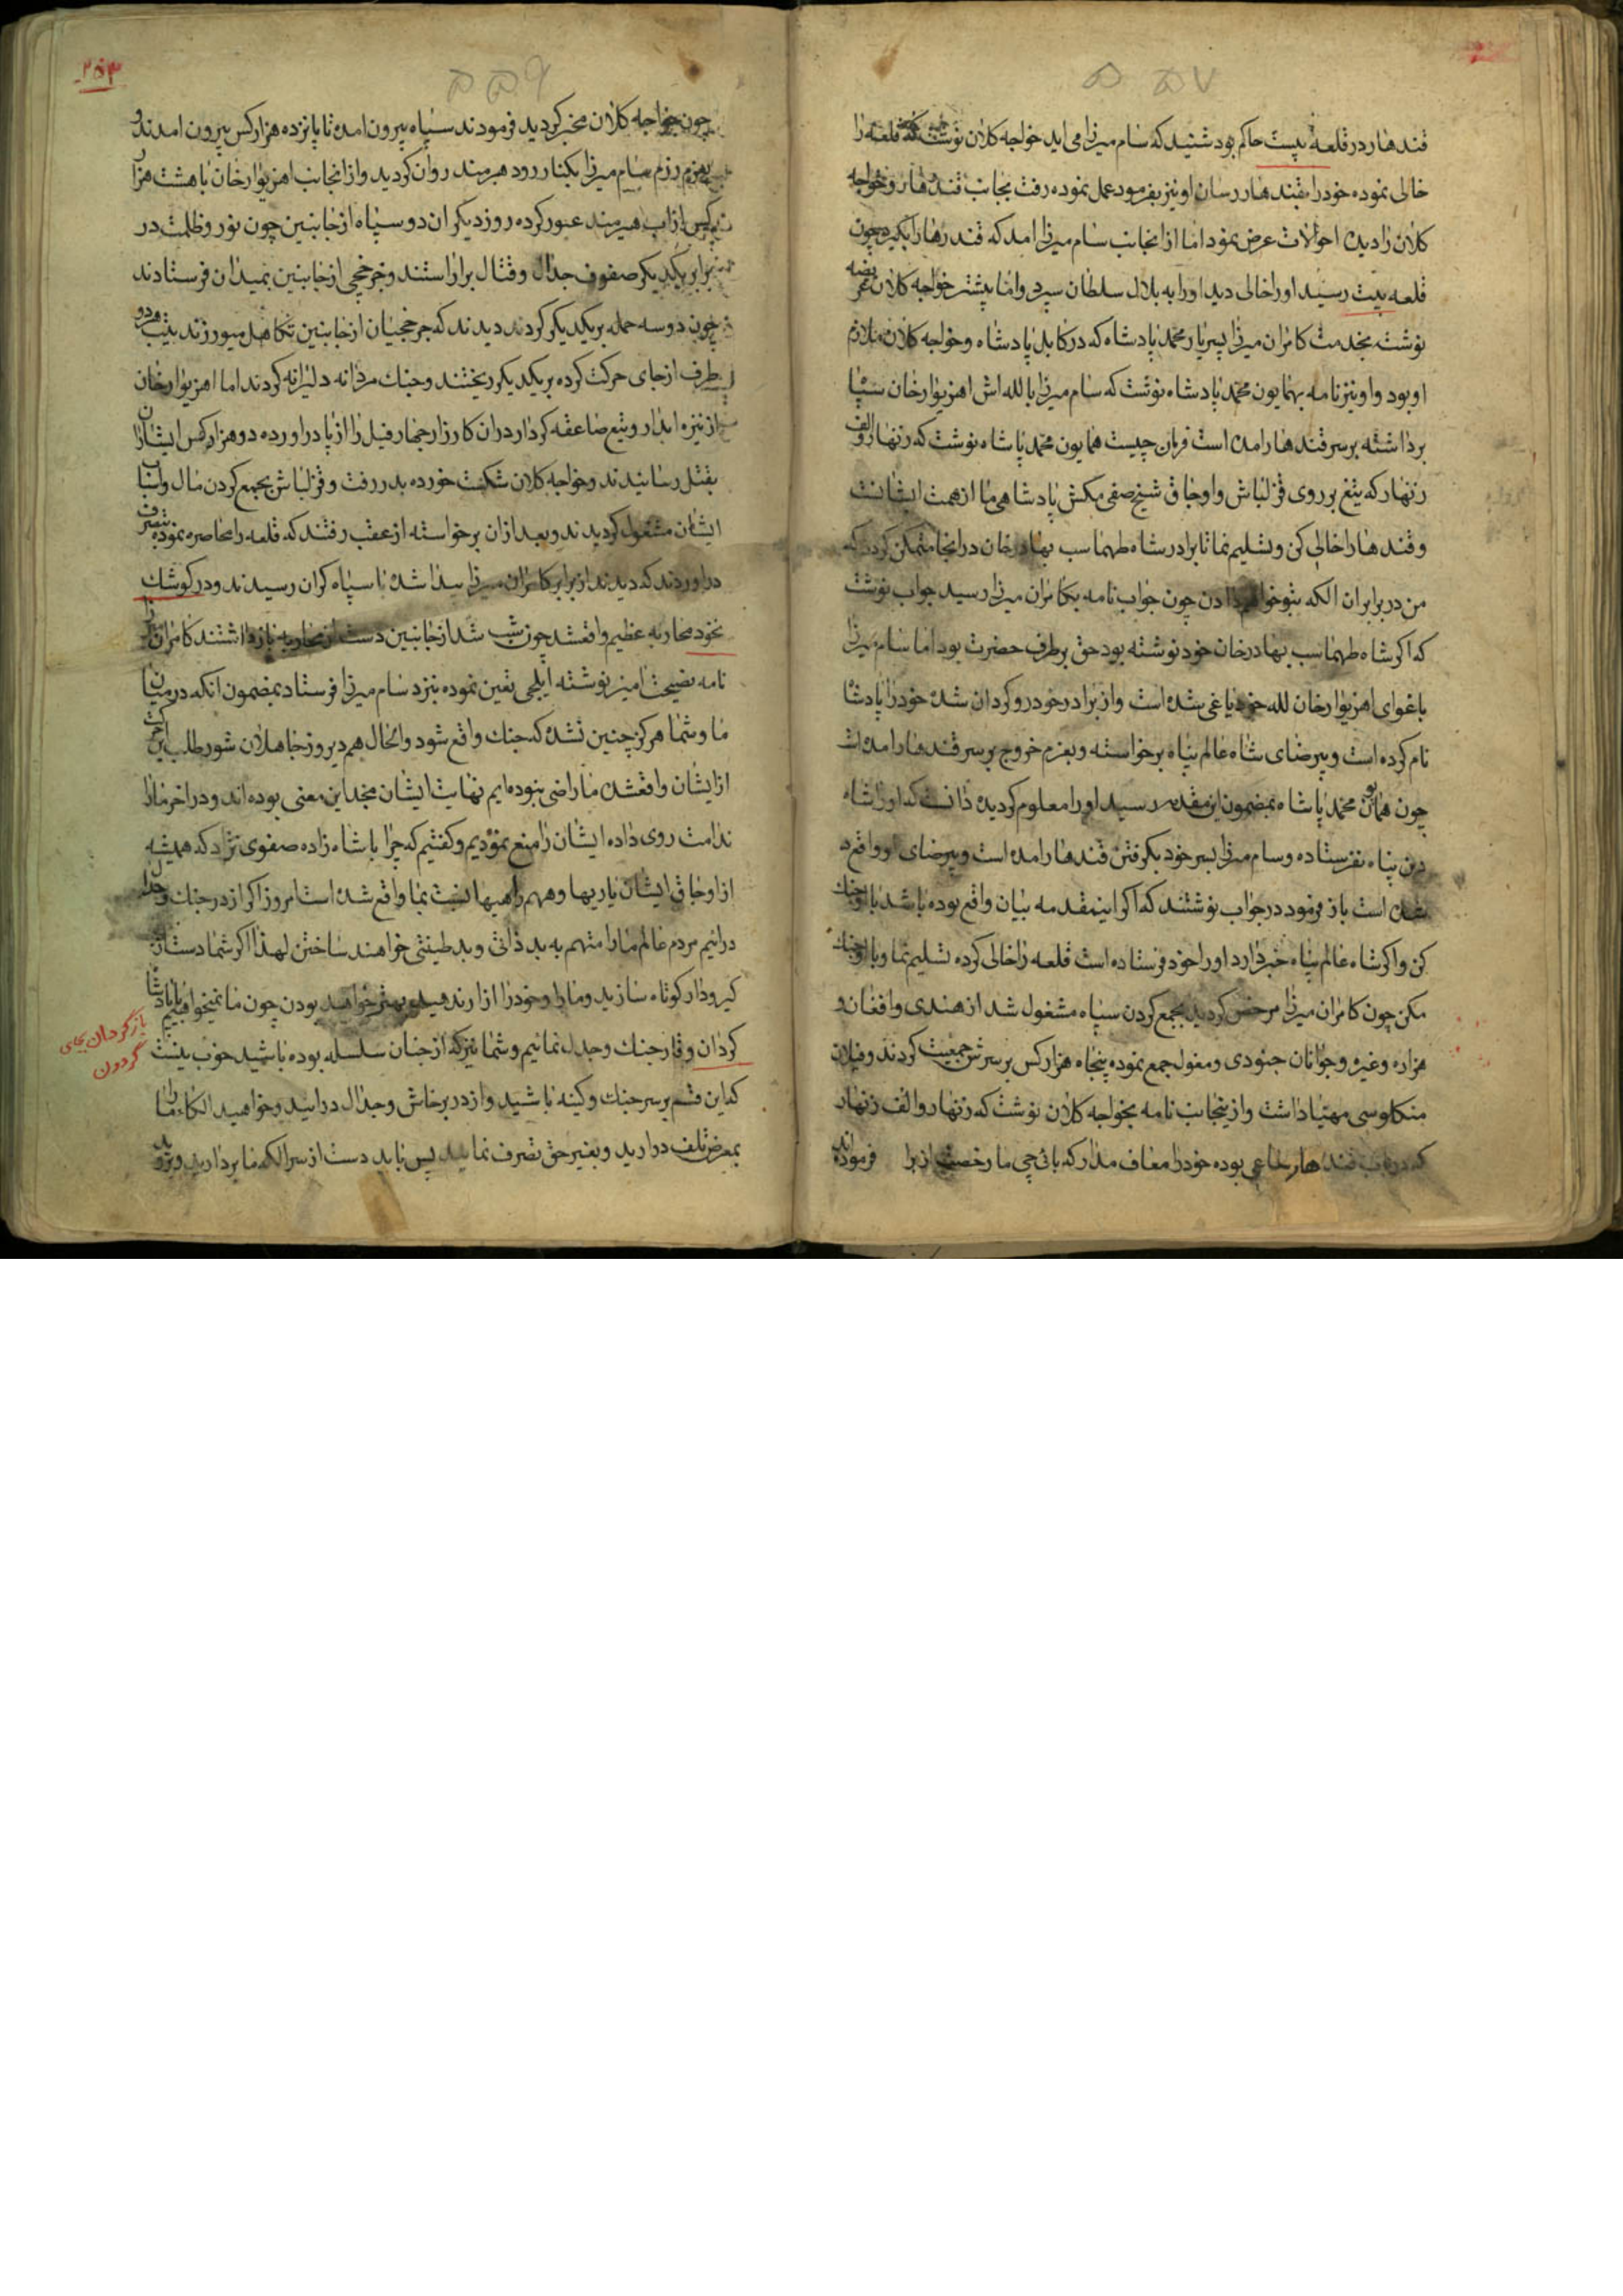 قندهار در قلعه بیست حاکم بود شنید که سام میرزا می اید خواجه کلان نوشت که قلعه را
خالی نموده خود را بقندهار رسان او نیز بفرمود عمل نموده رفت بجانب قندهار و خواجه
کلان را دیده احوالات عرض نمود اما از انجانب سام میرزا امد که قندهار را بگیرد چون
قلعه بیست رسید او را خالی دید او را به بلال سلطان سپرد و اما پیشتر خواجه کلان عریضه
نوشت بخدمت کامران میرزا پسر یار محمد پادشاه که در کابل پادشاه و خواجه کلان ملازم
او بود و او نیز نامه بهمایون محمد پادشاه نوشت که سام میرزا با لله اش اهنزیوار خان سپاه
برداشته بر سر قندهار امده است فرمان چیست همایون محمد پاشاه نوشت که زنهار و الف
زنهار که تیغ بر روی قزلباش و اوجاق شیخ صفی مکش پادشاهی ما از همت ایشانست
و قندهار را خالی کن و تسلیم نما تا برادر شاه طهماسب بهادر خان در انجا متمکن گردد که
من در برابر ان الکه بتو خواهم دادن چون جواب نامه بکامران میرزا رسید جواب نوشت
که اگر شاه طهماسب بهادر خان خود نوشته بود حق بر طرف حضرت بود اما سام میرزا
باغوای اهنزیوار خان لله خود یاغی شده است و از برادر خود رو گردان شده خود را پادشا
نام کرده است و بیرضای شاه عالم پناه برخواسته و بعزم خروج بر سر قندهار امده است
چون همایون محمد پاشاه بمضمون این مقدمه رسید او را معلوم گردیده دانست که او را شاه
دین پناه نفرستاده و سام میرزا بسر خود بگرفتن قندهار امده است و بیرضای او واقع
شده است باز فرمود در جواب نوشتند که اگر اینمقدمه بیان واقع بوده باشد با او جنك
کن و اگر شاه عالم پناه خبر دارد او را خود فرستاده است قلعه را خالی کرده تسلیم نما و با او جنك
مکن چون کامران میرزا مرخص گردید بجمع کردن سپاه مشغول شد از هندی و افغان و
هزاره و غیره و جوانان جنودی و مغول جمع نموده پنجاه هزار کس بر سرش جمعیت کردند و فیلان
منکلوسی مهیا داشت و از ینجانب نامه بخواجه کلان نوشت که زنهار و الف زنهار
که در باب قندهار ساعی بوده خود را معاف مدار که باتچی ما رخصت از برا فرموده اند
۲۵۳
۵۵۹
چون خواجه کلان مخبر گردید فرمودند سپاه بیرون امده تا پانزده هزار کس بیرون امدند و
بعزم رزم سام میرزا بکنار رود هیرمند روان گردید و از انجانب اهنزیوار خان با هشت هزار
کس از اب هیرمند عبور کرده روز دیگر ان دو سپاه از جانبین چون نور و ظلمت در
برابر یکدیگر صفوف جدال و قتال براراستند و چرخچی از جانبین بمیدان فرستادند
چون دو سه حمله بر یکدیگر کردند دیدند که چرخچیان از جانبین تکاهل میورزند هر دو
طرف از جای حرکت کرده بر یکدیگر ریختند و جنك مردانه دلیرانه کردند اما اهنزیوار خان
از نیزه ابدار و تیغ صاعقه کردار دران کارزار چهار فیل را از پا در اورده دو هزار کس ایشان را
بقتل رسانیدند و خواجه کلان شکست خورده بدر رفت و قزلباش بجمع کردن مال و اسباب
ایشان مشغول گردیدند و بعد از ان برخواسته از عقب رفتند که قلعه را محاصره نموده بتصرف
در اوردند که دیدند از برابر کامران میرزا پیدا شد با سپاه گران رسیدند و در کوشك
نخود محاربه عظیم واقعشد چون شب شد از جانبین دست از محاربه باز داشتند کامران میرزا
نامه نصیحت امیز نوشته ایلچی تعین نموده نیزد سام میرزا فرستاد بمضمون انکه در میان
ما و شما هرگز چنین نشده که جنك واقع شود و الحال هم دیروز جاهلان شور طلب این حرکت
از ایشان واقعشده ما راضی نبوده ایم نهایت ایشان مجد این معنی بوده اند و در اخر ما را
ندامت روی داده ایشان را منع نمودیم و گفتیم که چرا با شاه زاده صفوی نژاد که همیشه
از اوجاق ایشان یاریها و همراهیها نسبت بما واقع شده است امروز اگر از در جنك و جدل
درائیم مردم عالم ما را متهم به بد ذاتی و بد طینتی خواهند ساختن لهذا اگر شما دست از
گیرودار کوتاه سازید و ما را و خود را از ارندهید بهتر خواهید بودن چون ما نمیخواهیم با پادشا
گردان وقار جنك و جدل نمائیم و شما نیز که از چنان سلسله بوده باشید خوب نیست
که این قسم بر سر جنك و کینه باشید و از در پرخاش و جدال درایید و خواهید الکاء ما را
بمعرض تلف در ارید و بغیر حق تصرف نمائید پس باید دست از سر الکه ما بردارید و بزودی
بازگردان بجای
گردون